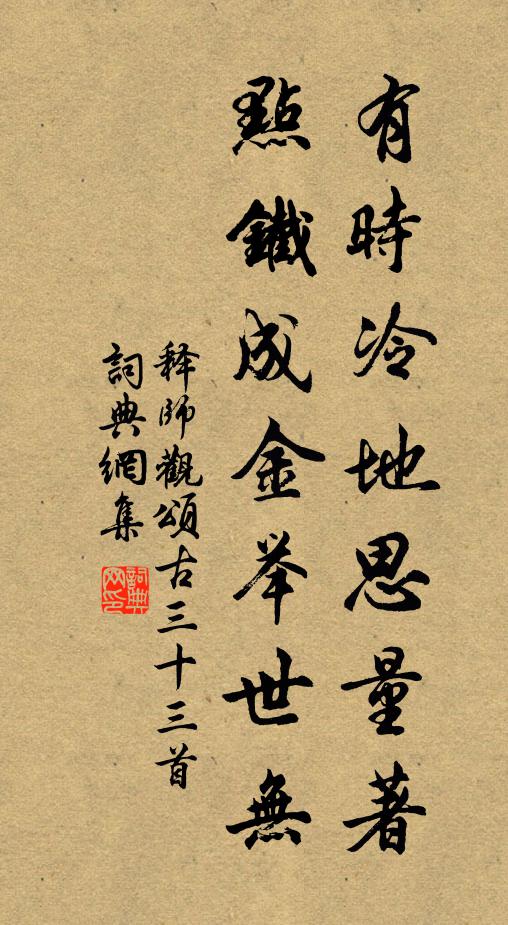 有時冷地思量著
點鐵成金举世無
释師觀頌古三十三首
詞典網集
詞典網印